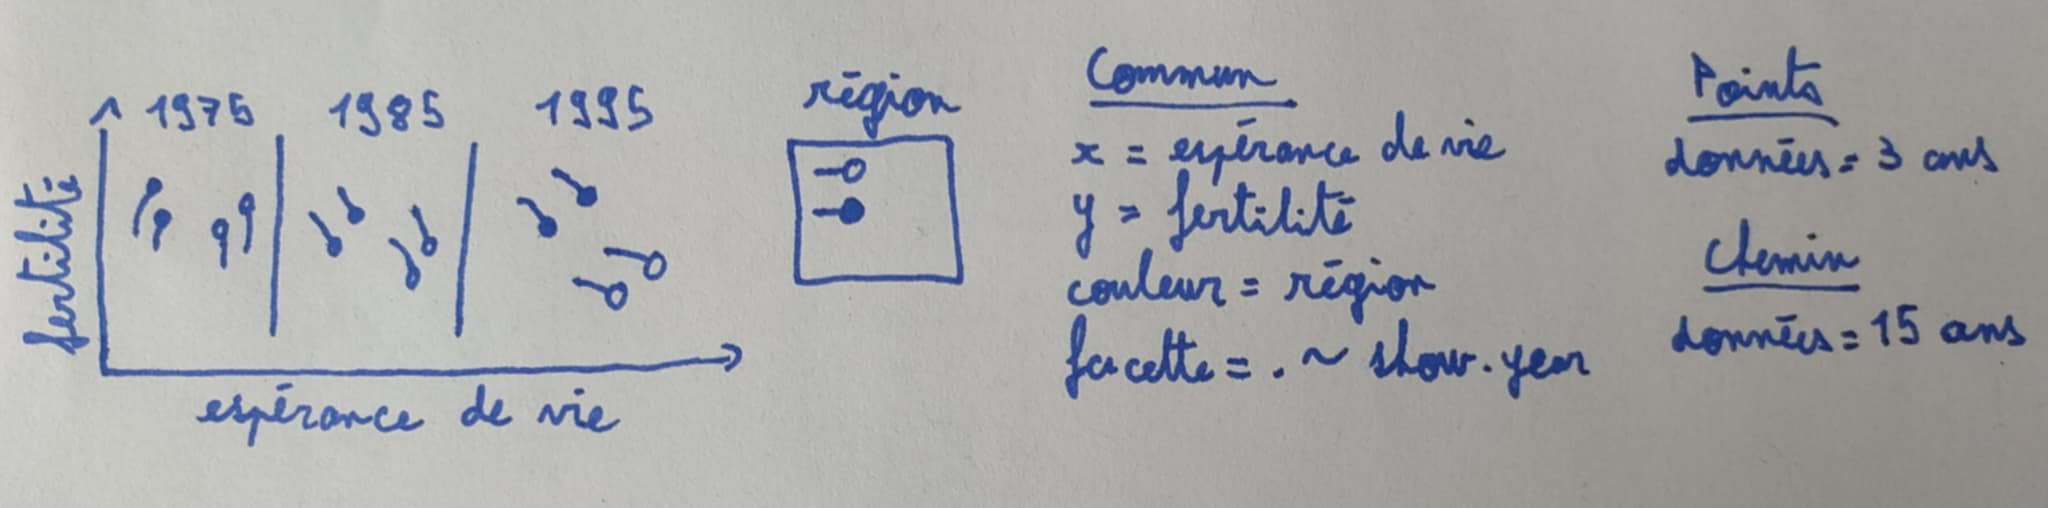 1975 1985 1995
fertilité
espérance de vie
région
Commun
x = espérance de vie
y = fertilité
couleur = région
facette = . ~ show.year
Points
données = 3 ans
Chemin
données = 15 ans